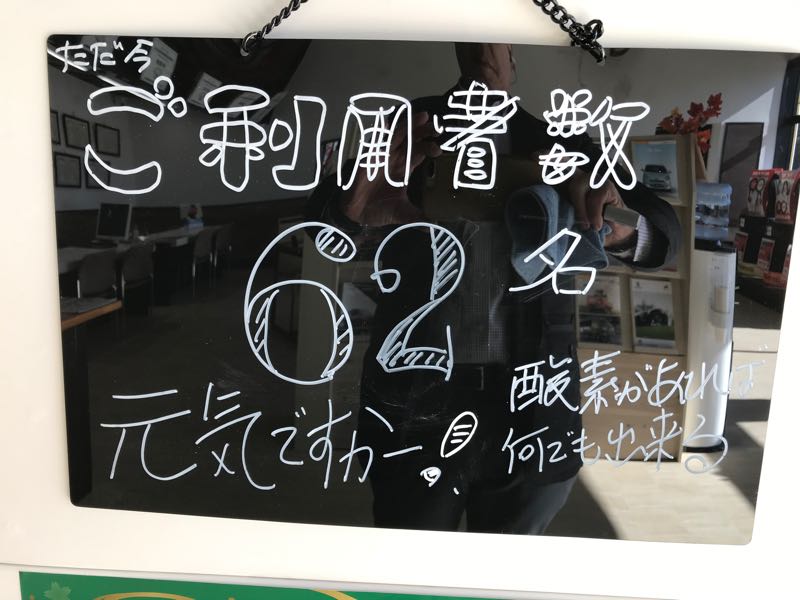 ただ今
ご利用者数
62名
元気ですかー!
酸素があれば
何でも出来る